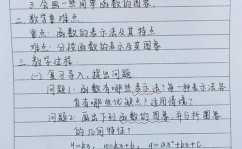 3. 会画一些简单函数的图象.
二、教学重难点
重点：函数的表示法及其特点
难点：分段函数的表示及其图象
三、教学过程
(一) 复习导入，提出问题
问题1：函数有哪些表示法？每一种表示法各
自有哪些优缺点？适用情境？
问题2：画出下列函数的图象，并分析图象
的几何特征？
y=kx, y=kx+b, y=ax²+bx+c